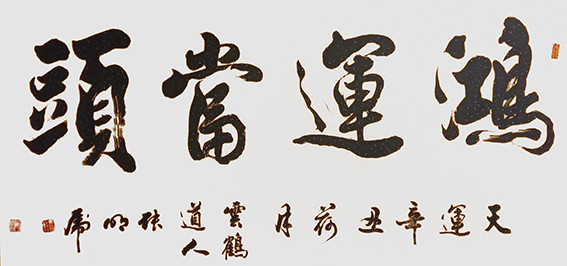 鴻運當頭
天運辛丑荷月雲鶴道人張明虎